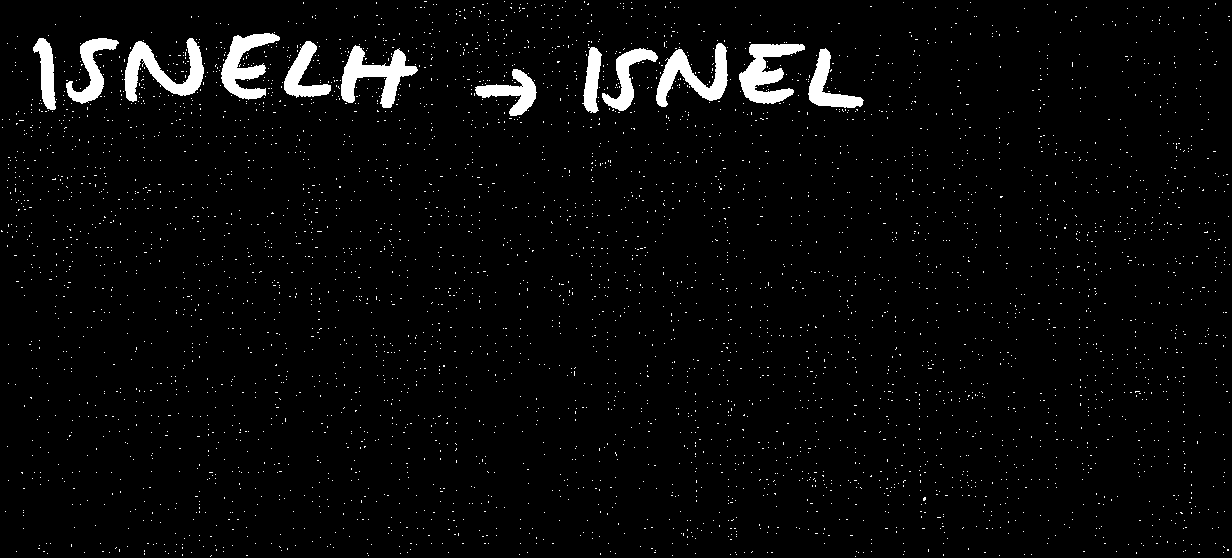 ISNELH → ISNEL